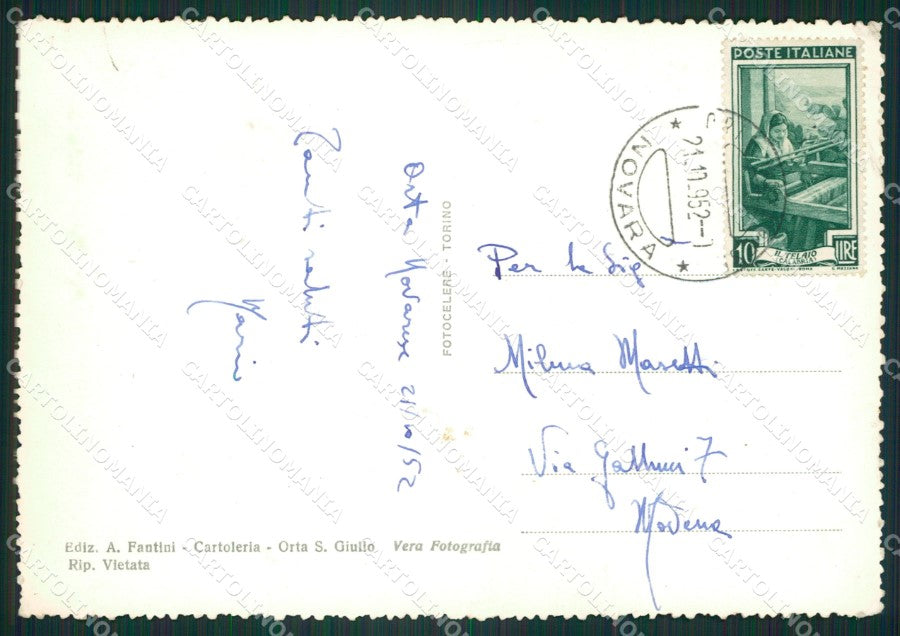 POSTE ITALIANE
10 LIRE
IL TELAIO
NOVARA
21.10.952
Orta Novarese 21/10/52
Tanti saluti
Mario
FOTOCELERE - TORINO
Per la Sig.
Milena Maretti
Via Gallucci 7
Modena
Ediz. A. Fantini - Cartoleria - Orta S. Giulio Vera Fotografia
Rip. Vietata
CARTOLINOMANIA